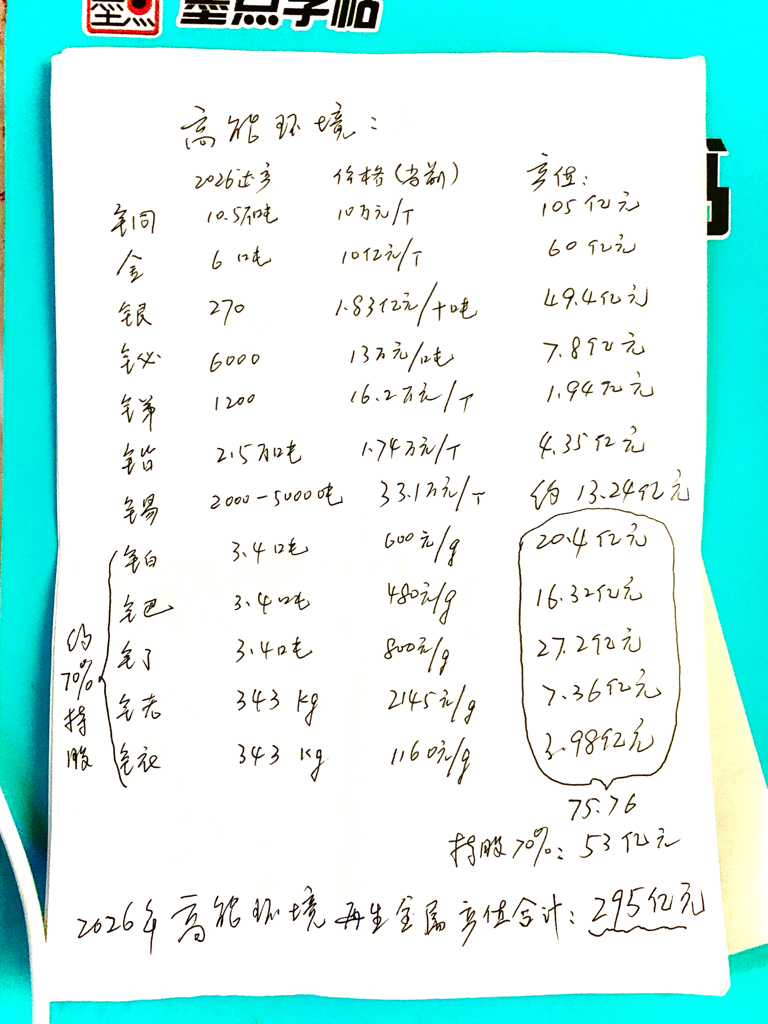 墨点字帖
高能环境：
2026达产 价格(当前) 产值：
铜 10.5万吨 10万元/T 105亿元
金 6吨 10亿元/T 60亿元
银 270 1.83亿元/十吨 49.4亿元
铋 6000 13万元/吨 7.8亿元
锑 1200 16.2万元/T 1.94亿元
锴 2.5万吨 1.74万元/T 4.35亿元
锡 2000-5000吨 33.1万元/T 约13.24亿元
铂 3.4吨 600元/g 20.4亿元
钯 3.4吨 480元/g 16.32亿元
钌 3.4吨 800元/g 27.2亿元
铑 343 kg 2145元/g 7.36亿元
铱 343 kg 1160元/g 3.98亿元
约70%持股
75.76
持股70%：53亿元
2026年高能环境再生金属产值合计：295亿元